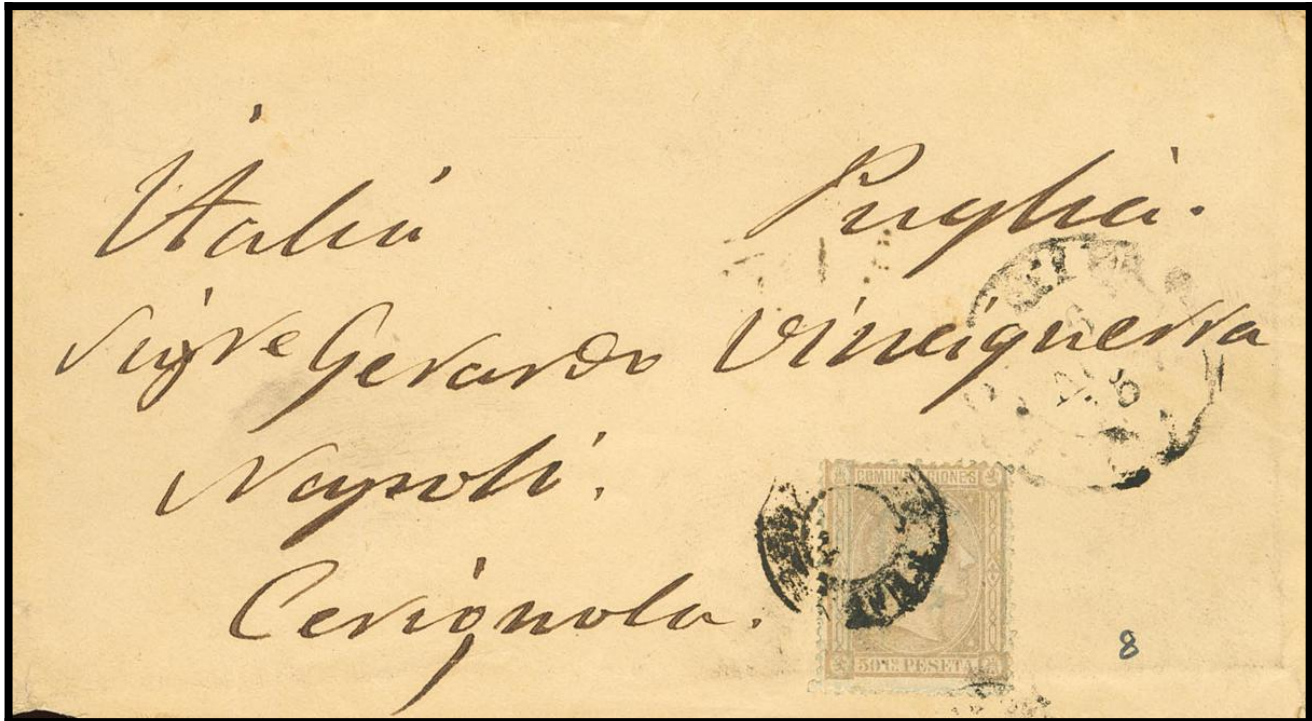 Italia Puglia.
Sigre Gerardo Vinciguerra
Napoli.
Cerignola.
COMUNICACIONES
50 CS PESETA
8